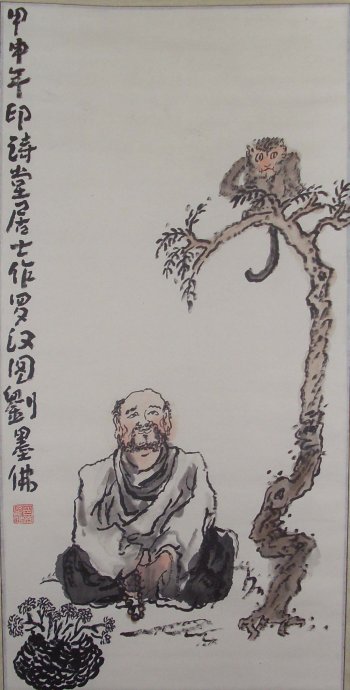 甲申年印诗堂居士作罗汉图劉墨佛